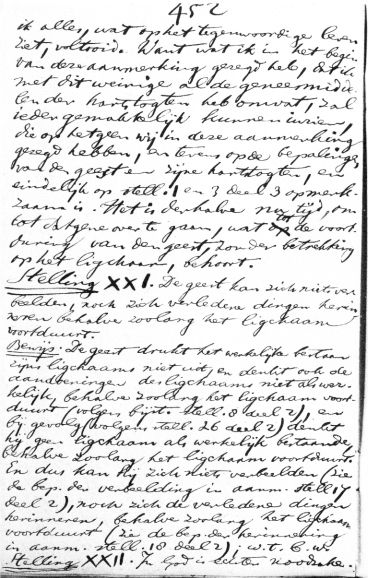 452
ik alles, wat op het tegenwoordige leven
ziet, voltooid. Want wat ik in het begin
van deze aanmerking gezegd heb, dat ik
met dit weinige al de geneesmidde-
len der hartstogten heb omvat, zal
ieder gemakkelijk kunnen inzien,
die op hetgeen wij in deze aanmerking
gezegd hebben, en tevens op de bepalingen
van den geest en zijne hartstogten, en
eindelijk op stell. 1 en 3 deel 3 opmerk-
zaam is. Het is derhalve nu tijd, om
tot datgene over te gaan, wat tot de voort-
during van den geest, zonder betrekking
op het ligchaam, behoort.
Stelling XXI. De geest kan zich niets ver-
beelden, noch zich verledene dingen herin-
neren behalve zoolang het ligchaam
voortduurt.
Bewijs. De geest drukt het werkelijke bestaan
zijns ligchaams niet uit, en denkt ook de
aandoeningen des ligchaams niet als wer-
kelijk, behalve zoolang het ligchaam voort-
duurt (volgens bijst. stell. 8 deel 2), en
bij gevolg (volgens stell. 26 deel 2) denkt
hij geen ligchaam als werkelijk bestaande,
behalve zoolang het ligchaam voortduurt.
En dus kan hij zich niets verbeelden (zie
de bep. der verbeelding in aanm. stell. 17
deel 2), noch zich de verledene dingen
herinneren, behalve zoolang het ligchaam
voortduurt (zie de bep. der herinnering
in aanm. stell. 18 deel 2); w. t. b. w.
Stelling XXII. In God is echter noodzake-